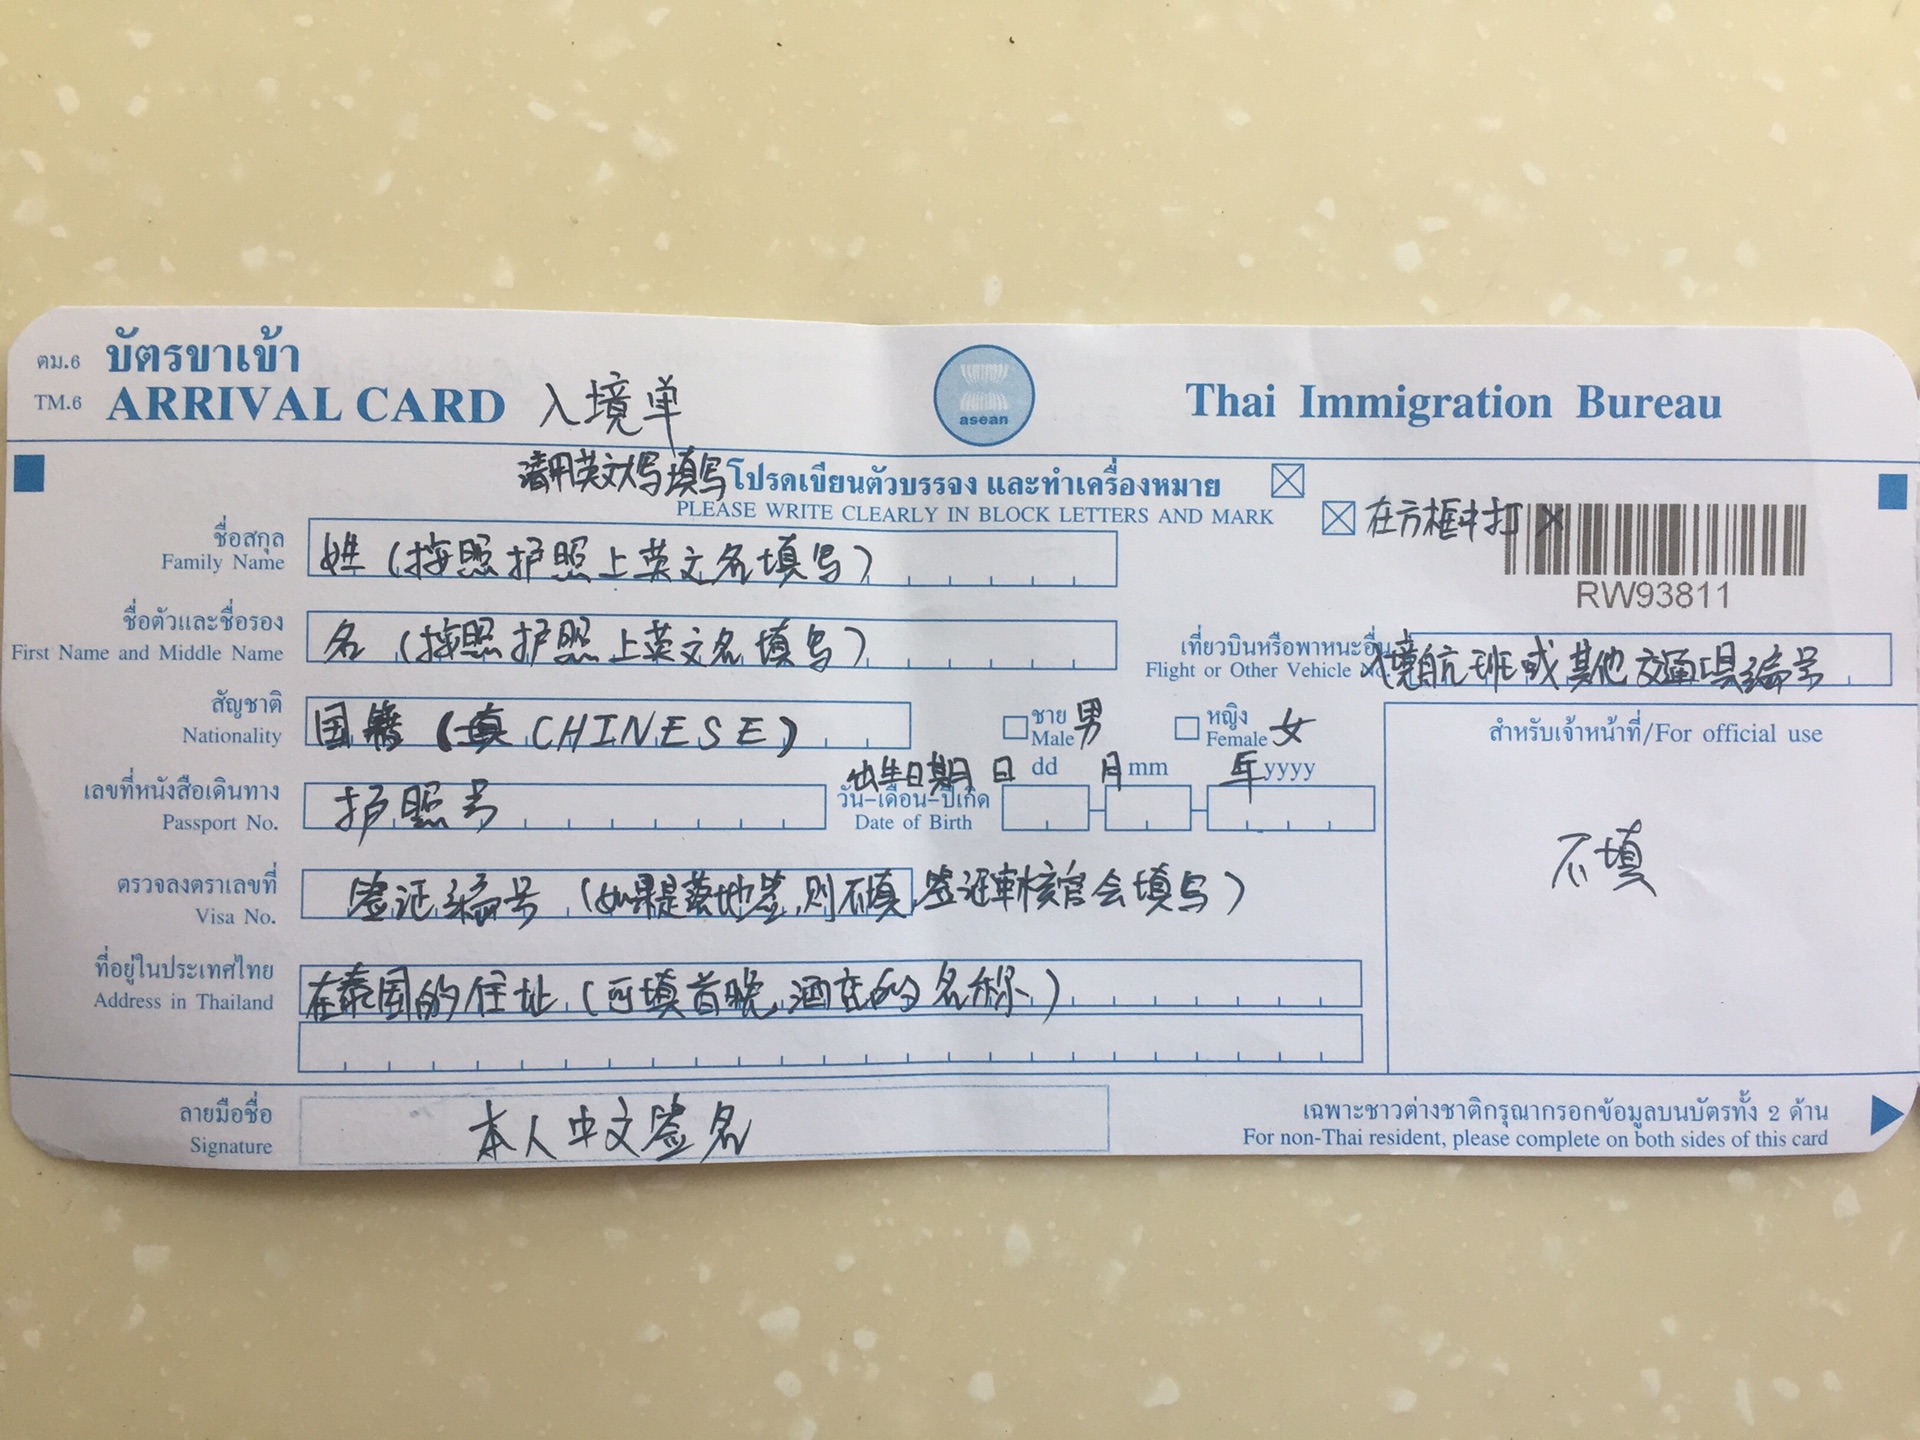 ตม.6 บัตรขาเข้า
TM.6 ARRIVAL CARD 入境单
asean
Thai Immigration Bureau
请用英文大写填写 โปรดเขียนตัวบรรจง และทำเครื่องหมาย
PLEASE WRITE CLEARLY IN BLOCK LETTERS AND MARK
在方框中打 X
RW93811
ชื่อสกุล
Family Name
姓 (按照护照上英文名填写)
ชื่อตัวและชื่อรอง
First Name and Middle Name
名 (按照护照上英文名填写)
เที่ยวบินหรือพาหนะอื่น
Flight or Other Vehicle No.
入境航班或其他交通工具编号
สัญชาติ
Nationality
国籍 (填 CHINESE)
ชาย
Male 男
หญิง
Female 女
สำหรับเจ้าหน้าที่/For official use
不填
เลขที่หนังสือเดินทาง
Passport No.
护照号
出生日期 日 dd 月 mm 年 yyyy
วัน-เดือน-ปีเกิด
Date of Birth
ตรวจลงตราเลขที่
Visa No.
签证编号 (如果是落地签,则不填,签证审核官会填写)
ที่อยู่ในประเทศไทย
Address in Thailand
在泰国的住址 (可填首晚酒店的名称)
ลายมือชื่อ
Signature
本人中文签名
เฉพาะชาวต่างชาติกรุณากรอกข้อมูลบนบัตรทั้ง 2 ด้าน
For non-Thai resident, please complete on both sides of this card